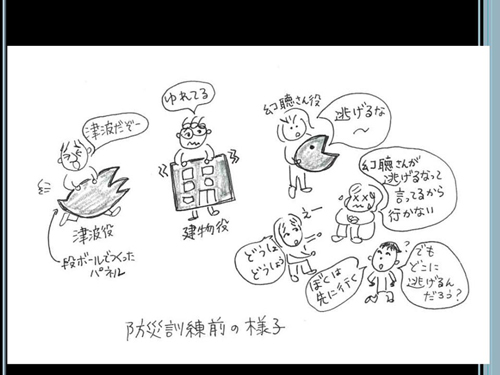 津波だぞー
津波役
段ボールでつくった
パネル
ゆれてる
建物役
幻聴さん役
逃げるな
〜
幻聴さんが
逃げるなって
言ってるから
行かない
えー
どうしよ
どうしよう
ぼくは
先に行く
でも
どこに
逃げるん
だろう?
?
防災訓練前の様子